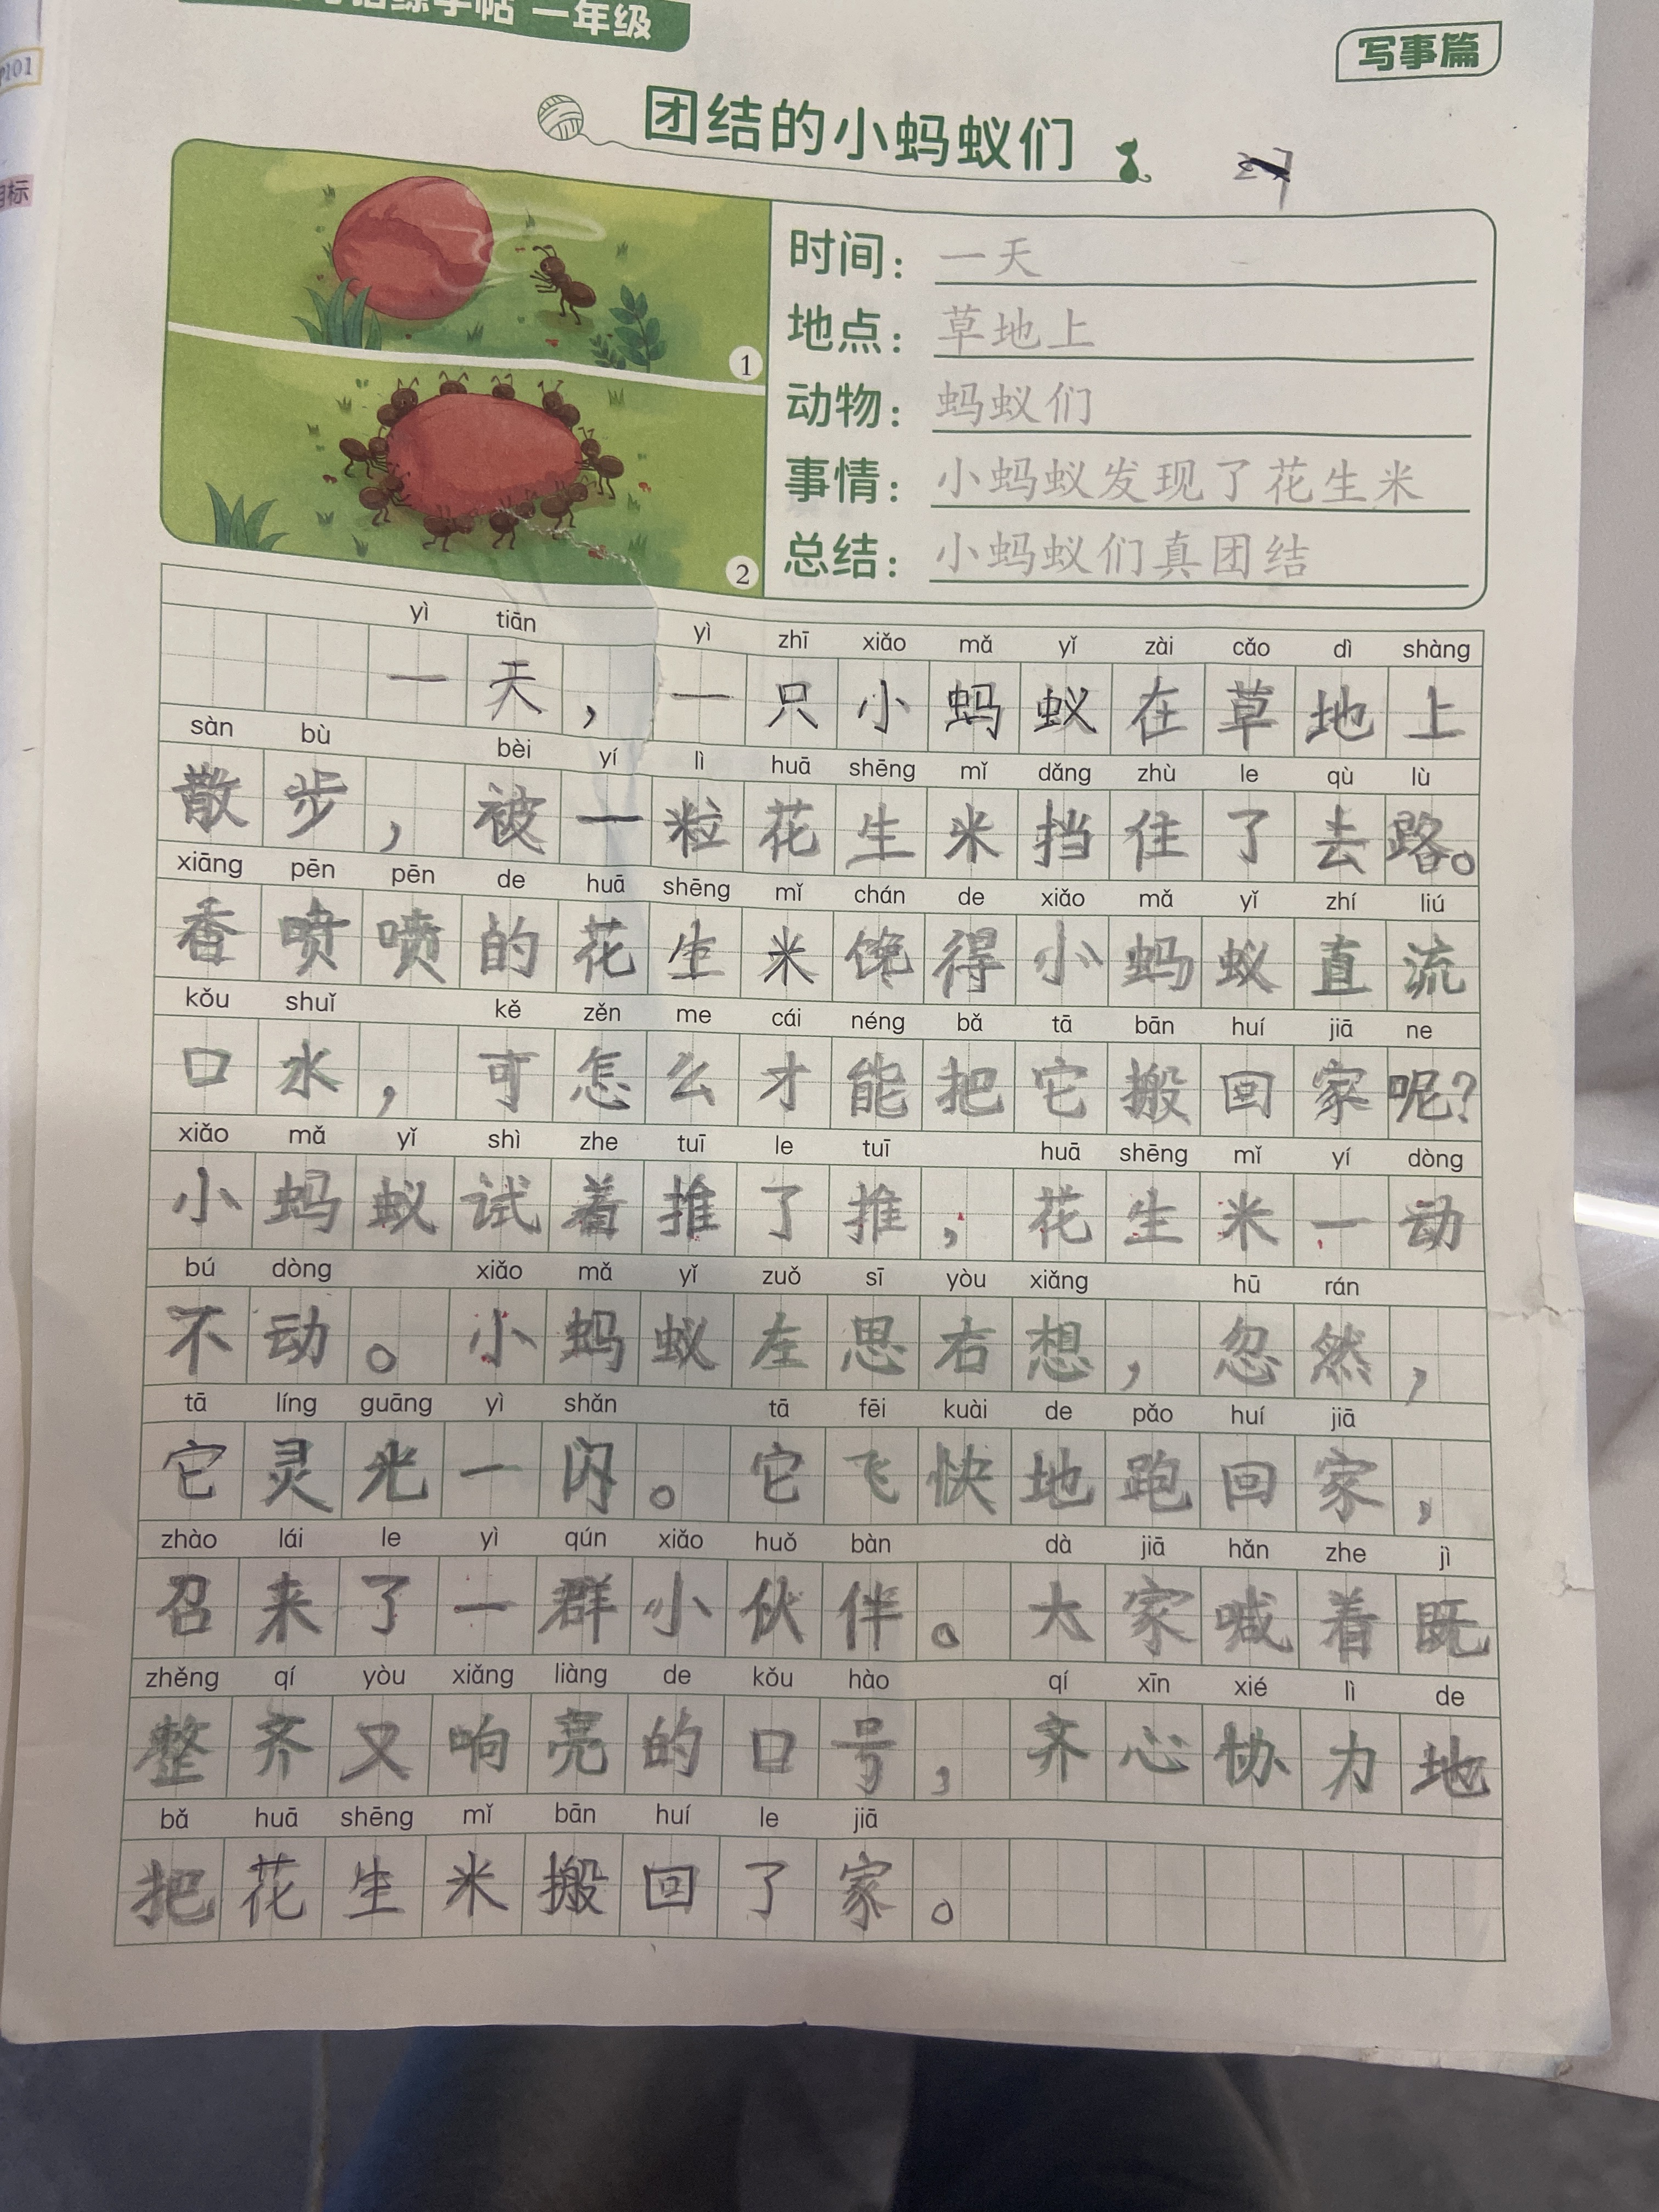 练字帖 一年级
写事篇
P101
目标
团结的小蚂蚁们
时间：一天
地点：草地上
动物：蚂蚁们
事情：小蚂蚁发现了花生米
总结：小蚂蚁们真团结
1
2
yì tiān yì zhī xiǎo mǎ yǐ zài cǎo dì shàng
一天，一只小蚂蚁在草地上
sàn bù bèi yí lì huā shēng mǐ dǎng zhù le qù lù
散步，被一粒花生米挡住了去路。
xiāng pēn pēn de huā shēng mǐ chán de xiǎo mǎ yǐ zhí liú
香喷喷的花生米馋得小蚂蚁直流
kǒu shuǐ kě zěn me cái néng bǎ tā bān huí jiā ne
口水，可怎么才能把它搬回家呢？
xiǎo mǎ yǐ shì zhe tuī le tuī huā shēng mǐ yí dòng
小蚂蚁试着推了推，花生米一动
bú dòng xiǎo mǎ yǐ zuǒ sī yòu xiǎng hū rán
不动。小蚂蚁左思右想，忽然，
tā líng guāng yì shǎn tā fēi kuài de pǎo huí jiā
它灵光一闪。它飞快地跑回家，
zhào lái le yì qún xiǎo huǒ bàn dà jiā hǎn zhe jì
召来了一群小伙伴。大家喊着既
zhěng qí yòu xiǎng liàng de kǒu hào qí xīn xié lì de
整齐又响亮的口号，齐心协力地
bǎ huā shēng mǐ bān huí le jiā
把花生米搬回了家。